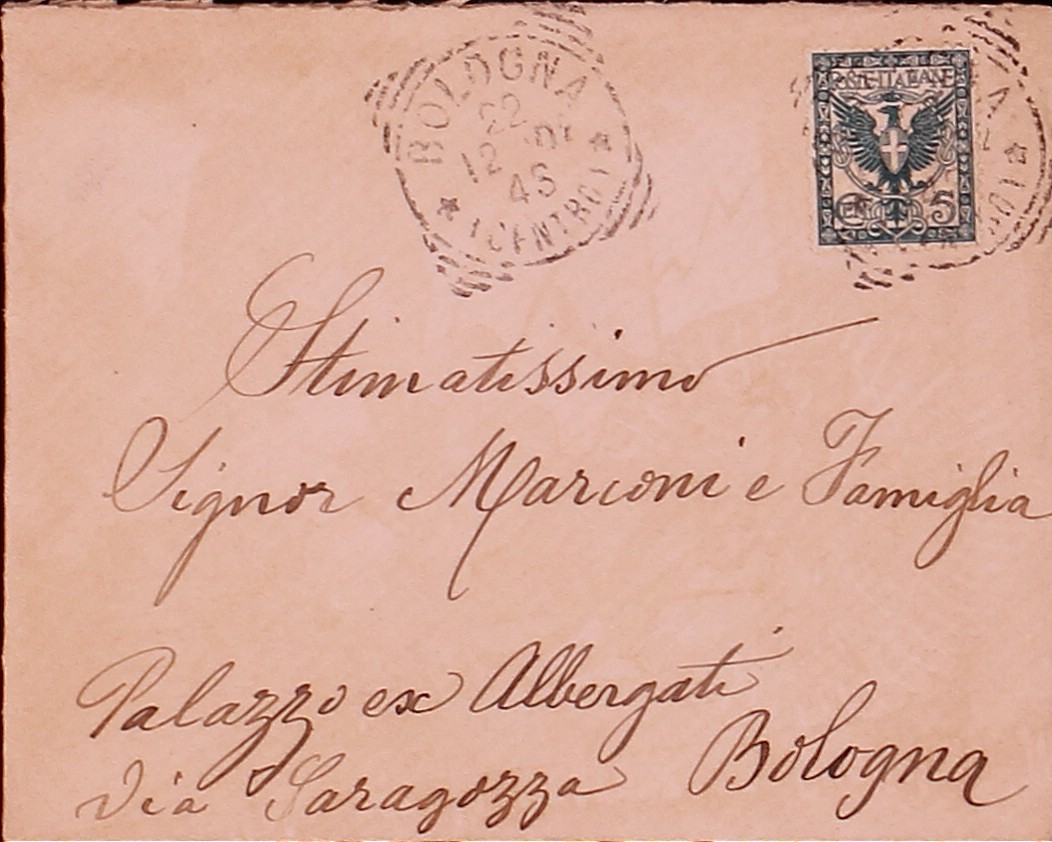 BOLOGNA
22
12 01
4S
★ (CENTRO) ★
POSTE ITALIANE
CEN. 5
Stimatissimo
Signor Marconi e Famiglia
Palazzo ex Albergati
Via Saragozza Bologna